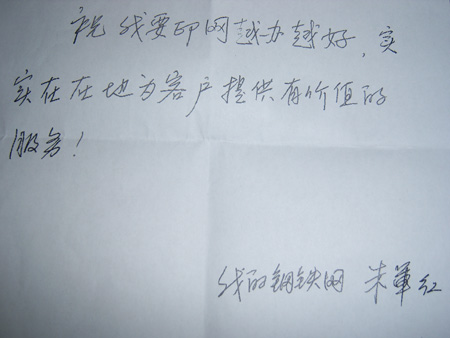 祝我要印网越办越好,实
实在在地为客户提供有价值的
服务!
我的钢铁网 朱军红